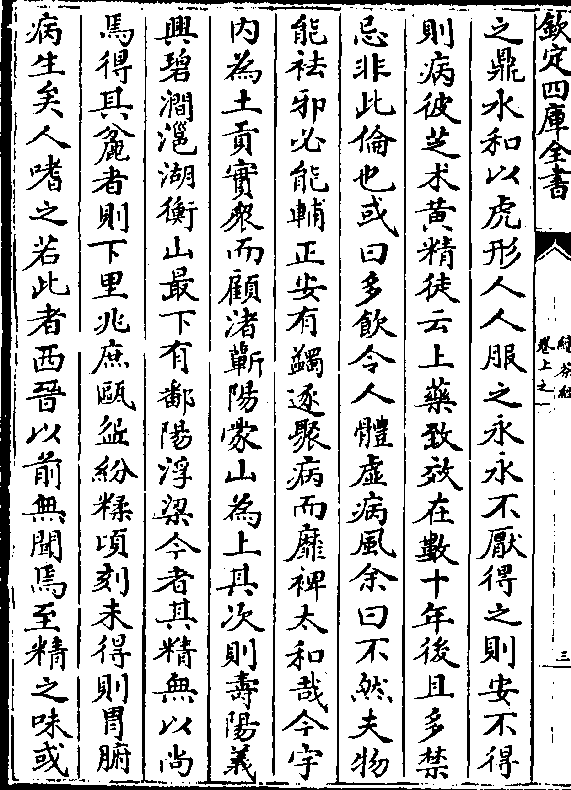 欽定四庫全書
續茶經
卷上之一
三
之鼎水和以虎形人人服之永永不厭得之則安不得
則病彼芝术黃精徒云上藥致效在數十年後且多禁
忌非此倫也或曰多飲令人體虛病風余曰不然夫物
能袪邪必能輔正安有蠲逐聚病而靡裨太和哉今宇
內為土貢實衆而顧渚蘄陽蒙山為上其次則壽陽義
興碧澗㴩湖衡山最下有鄱陽浮梁今者其精無以尚
焉得其麄者則下里兆庶甌盌紛糅頃刻未得則胃腑
病生矣人嗜之若此者西晉以前無聞焉至精之味或